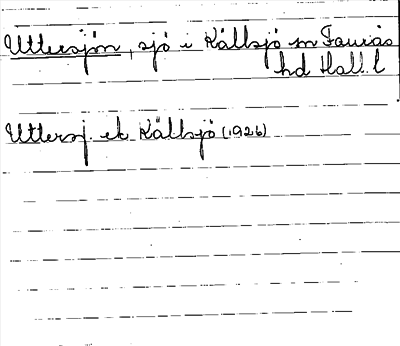 Uttersjön, sjö i Källsjö sn Faurås
hd Hall. l
Uttersj. ek Källsjö (1926)